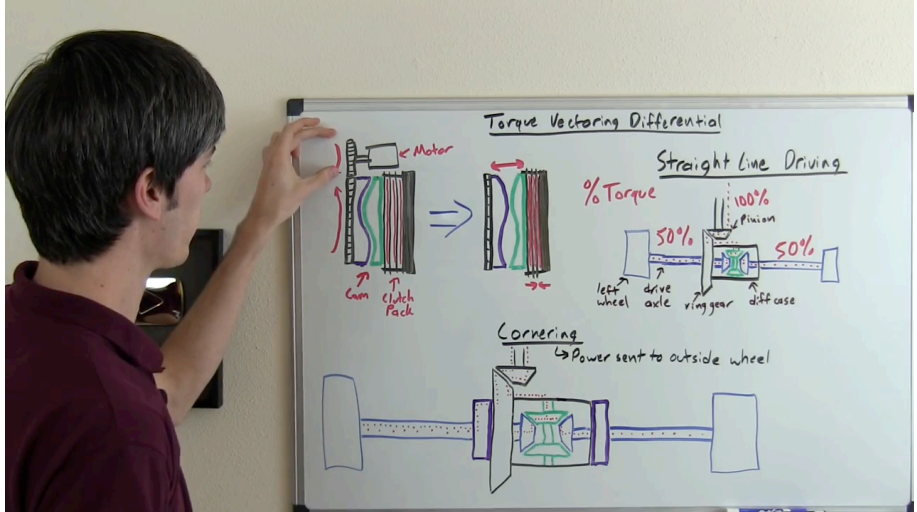 Torque Vectoring Differential
Motor
Cam
Clutch
Pack
% Torque
Straight Line Driving
100%
Pinion
50%
50%
left
wheel
drive
axle
ring gear
diff case
Cornering
Power sent to outside wheel